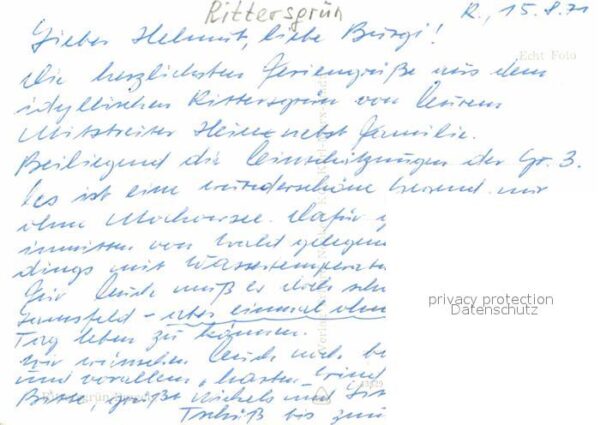 Rittersgrün
R., 15.8.71
Lieber Helmut, liebe Burgi!
Echt Foto
Die herzlichsten Feriengrüße aus dem
idyllischen Rittersgrün von Eurem
Mitstreiter Heinz nebst Familie.
Beiliegend die Einschätzungen der Gr. 3.
Es ist eine wunderschöne Gegend nur
ohne Dafür
inmitten von Wald gelegen
dings mit Wassertemperatu
Für Euch muß es doch sch
- aber einmal ohn
Tag leben zu können.
Wir wünschen Euch noch
und vorallem
Bitte, grüßt Michels und
Tschüß bis zum
privacy protection
Datenschutz